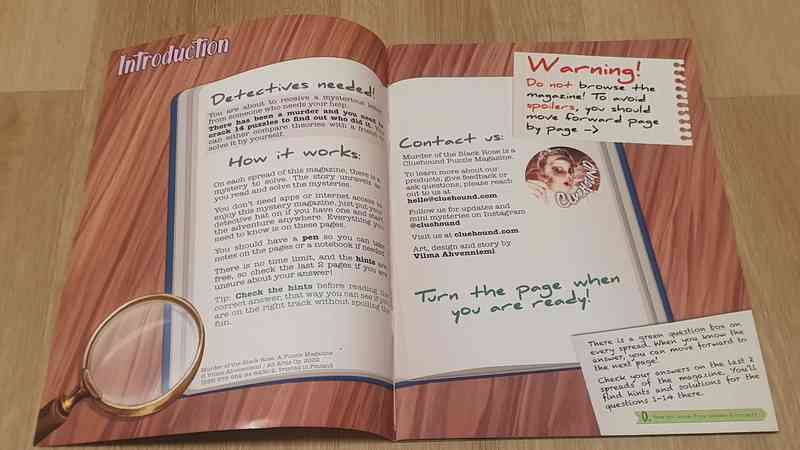 Introduction
Detectives needed!
You are about to receive a mysterious
from someone who needs your help.
There has been a murder and you need to
crack 14 puzzles to find out who did it.
can either compare theories with a friend
solve it by yourself.
How it works:
On each spread of this magazine, there is a
mystery to solve. The story unravels as
you read and solve the mysteries.
You don't need apps or internet access to
enjoy this mystery magazine, just put your
detective hat on if you have one and start
the adventure anywhere. Everything you
need to know is on these pages.
You should have a pen so you can take
notes on the pages or a notebook if needed.
There is no time limit, and the hints are
free, so check the last 2 pages if you are
unsure about your answer!
Tip: Check the hints before reading the
correct answer, that way you can see if you
are on the right track without spoiling the
fun.
Murder of the Black Rose, A Puzzle Magazine
© Vilma Ahvenniemi / All Arts Oy, 2022
Printed in Finland
Warning!
Do not browse the
magazine! To avoid
spoilers, you should
move forward page
by page ->
Contact us:
Murder of the Black Rose is a
Cluehound Puzzle Magazine.
To learn more about our
products, give feedback or
ask questions, please reach
out to us at
hello@cluehound.com
Follow us for updates and
mini mysteries on Instagram
@cluehound
Visit us at cluehound.com
Art, design and story by
Vilma Ahvenniemi
Turn the page when
you are ready!
There is a green question box on
every spread. When you know the
answer, you can move forward to
the next page!
Check your answers on the last 2
spreads of the magazine. You'll
find hints and solutions for the
questions 1-14 there.
0.